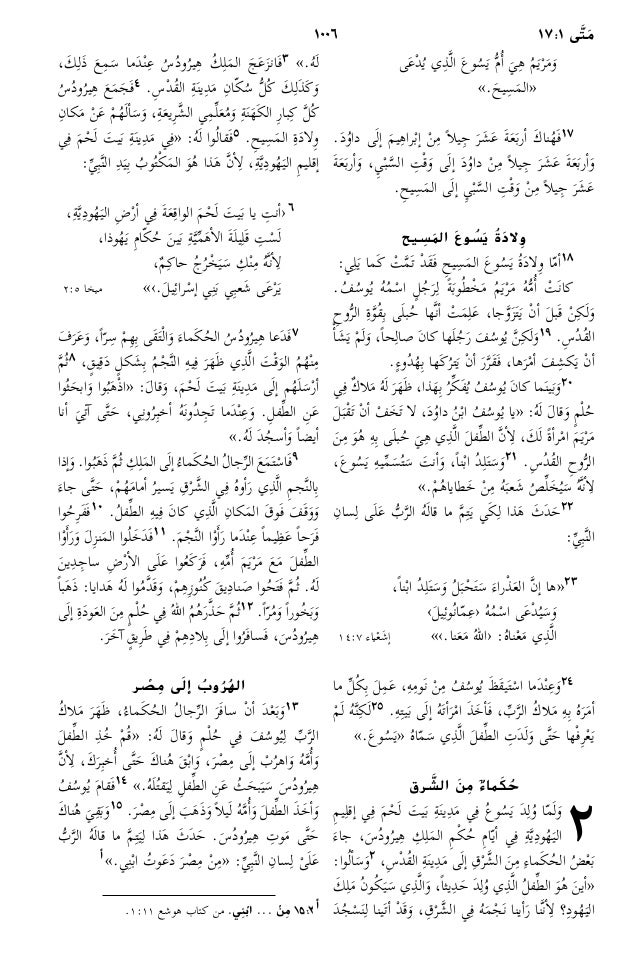 مَتَّى ١٧:١
١٠٠٦
وَمَرْيَمُ هِيَ أُمُّ يَسُوعَ الَّذِي يُدْعَى
«المَسِيحَ.»
١٧فَهُناكَ أربَعَةَ عَشَرَ جِيلاً مِنْ إبْراهِيمَ إلَى داوُدَ.
وَأربَعَةَ عَشَرَ جِيلاً مِنْ داوُدَ إلَى وَقْتِ السَّبْيِ، وَأربَعَةَ
عَشَرَ جِيلاً مِنْ وَقْتِ السَّبْيِ إلَى المَسِيحِ.
وِلادَةُ يَسُوعَ المَسِيح
١٨أمّا وِلادَةُ يَسُوعَ المَسِيحِ فَقَدْ تَمَّتْ كَما يَلِي:
كانَتْ أُمُّهُ مَرْيَمُ مَخْطُوبَةً لِرَجُلٍ اسْمُهُ يُوسُفُ.
وَلَكِنْ قَبلَ أنْ يَتَزَوَّجا، عَلِمَتْ أنَّها حُبلَى بِقُوَّةِ الرُّوحِ
القُدُسِ. ١٩وَلَكِنَّ يُوسُفَ رَجُلَها كانَ صالِحاً، وَلَمْ يَشَأْ
أنْ يَكشِفَ أمْرَها، فَقَرَّرَ أنْ يَتْرُكَها بِهُدُوءٍ.
٢٠وَبَينَما كانَ يُوسُفُ يُفَكِّرُ بِهَذا، ظَهَرَ لَهُ مَلاكٌ فِي
حُلْمٍ وَقالَ لَهُ: «يا يُوسُفُ ابْنُ داوُدَ، لا تَخَفْ أنْ تَقْبَلَ
مَرْيَمَ امْرأةً لَكَ، لِأنَّ الطِّفلَ الَّذِي هِيَ حُبلَى بِهِ هُوَ مِنَ
الرُّوحِ القُدُسِ. ٢١وَسَتَلِدُ ابْناً، وَأنتَ سَتُسَمِّيهِ يَسُوعَ،
لِأنَّهُ سَيُخَلِّصُ شَعبَهُ مِنْ خَطاياهُمْ.»
٢٢حَدَثَ هَذا لِكَي يَتِمَّ ما قالَهُ الرَّبُّ عَلَى لِسانِ
النَّبِيِّ:
٢٣«ها إنَّ العَذْراءَ سَتَحْبَلُ وَسَتَلِدُ ابْناً،
وَسَيُدْعَى اسْمُهُ ‹عِمّانُوئِيلَ›
الَّذِي مَعْناهُ: ‹اللهُ مَعَنا.›» إشَعْياء ١٤:٧
٢٤وَعِنْدَما استَيقَظَ يُوسُفُ مِنْ نَومِهِ، عَمِلَ بِكُلِّ ما
أمَرَهُ بِهِ مَلاكُ الرَّبِّ، فَأخَذَ امْرأتَهُ إلَى بَيتِهِ. ٢٥لَكِنَّهُ لَمْ
يَعْرِفْها حَتَّى وَلَدَتِ الطِّفلَ الَّذِي سَمّاهُ «يَسُوعَ.»
حُكَماءٌ مِنَ الشَّرق
٢ وَلَمّا وُلِدَ يَسُوعُ فِي مَدِينَةِ بَيتَ لَحْمَ فِي إقلِيمِ
اليَهُودِيَّةِ فِي أيّامِ حُكْمِ المَلِكِ هِيرُودُسَ، جاءَ
بَعْضُ الحُكَماءِ مِنَ الشَّرْقِ إلَى مَدِينَةِ القُدْسِ، ٢وَسَألُوا:
«أينَ هُوَ الطِّفلُ الَّذِي وُلِدَ حَدِيثاً، وَالَّذِي سَيَكُونُ مَلِكَ
اليَهُودِ؟ لِأنَّنا رَأينا نَجْمَهُ فِي الشَّرْقِ، وَقَدْ أتَينا لِنَسْجُدَ
لَهُ.» ٣فَانزَعَجَ المَلِكُ هِيرُودُسُ عِندَما سَمِعَ ذَلِكَ،
وَكَذَلِكَ كُلُّ سُكّانِ مَدِينَةِ القُدْسِ. ٤فَجَمَعَ هِيرُودُسُ
كُلَّ كِبارِ الكَهَنَةِ وَمُعَلِّمِي الشَّرِيعَةِ، وَسَألَهُمْ عَنْ مَكانِ
وِلادَةِ المَسِيحِ. ٥فَقالُوا لَهُ: «فِي مَدِينَةِ بَيتَ لَحْمَ فِي
إقلِيمِ اليَهُودِيَّةِ، لِأنَّ هَذا هُوَ المَكْتُوبُ بِيَدِ النَّبِيِّ:
٦‹أنتِ يا بَيتَ لَحْمَ الواقِعَةَ فِي أرْضِ اليَهُودِيَّةِ،
لَسْتِ قَلِيلَةَ الأهَمِّيَّةِ بَينَ حُكّامِ يَهُوذا،
لِأنَّهُ مِنْكِ سَيَخْرُجُ حاكِمٌ،
يَرْعَى شَعبِي بَنِي إسْرائِيلَ.›» ميخا ٢:٥
٧فَدَعا هِيرُودُسُ الحُكَماءَ وَالْتَقَى بِهِمْ سِرّاً، وَعَرَفَ
مِنْهُمُ الوَقْتَ الَّذِي ظَهَرَ فِيهِ النَّجْمُ بِشَكلٍ دَقِيقٍ، ٨ثُمَّ
أرْسَلَهُمْ إلَى مَدِينَةِ بَيتَ لَحْمَ، وَقالَ: «اذْهَبُوا وَابحَثُوا
عَنِ الطِّفلِ. وَعِندَما تَجِدُونَهُ أخبِرُونِي، حَتَّى آتِيَ أنا
أيضاً وَأسجُدَ لَهُ.»
٩فَاسْتَمَعَ الرِّجالُ الحُكَماءُ إلَى المَلِكِ ثُمَّ ذَهَبُوا. وَإذا
بِالنَّجمِ الَّذِي رَأوهُ فِي الشَّرْقِ يَسيرُ أمامَهُمْ، حَتَّى جاءَ
وَوَقَفَ فَوقَ المَكانِ الَّذِي كانَ فِيهِ الطِّفلُ. ١٠فَفَرِحُوا
فَرَحاً عَظِيماً عِندَما رَأَوْا النَّجْمَ. ١١فَدَخَلُوا المَنزِلَ وَرَأَوْا
الطِّفلَ مَعَ مَرْيَمَ أُمِّهِ، فَرَكَعُوا عَلَى الأرْضِ ساجِدِينَ
لَهُ. ثُمَّ فَتَحُوا صَنادِيقَ كُنُوزِهِمْ، وَقَدَّمُوا لَهُ هَدايا: ذَهَباً
وَبَخُوراً وَمُرّاً. ١٢ثُمَّ حَذَّرَهُمُ اللهُ فِي حُلْمٍ مِنَ العَودَةِ إلَى
هِيرُودُسَ، فَسافَرُوا إلَى بِلادِهِمْ فِي طَرِيقٍ آخَرَ.
الهُرُوبُ إلَى مِصْر
١٣وَبَعْدَ أنْ سافَرَ الرِّجالُ الحُكَماءُ، ظَهَرَ مَلاكُ
الرَّبِّ لِيُوسُفَ فِي حُلْمٍ وَقالَ لَهُ: «قُمْ خُذِ الطِّفلَ
وَأُمَّهُ وَاهرُبْ إلَى مِصْرَ، وَابْقَ هُناكَ حَتَّى أُخبِرَكَ، لِأنَّ
هِيرُودُسَ سَيَبحَثُ عَنِ الطِّفلِ لِيَقتُلَهُ.» ١٤فَقامَ يُوسُفُ
وَأخَذَ الطِّفلَ وَأُمَّهُ لَيلاً وَذَهَبَ إلَى مِصْرَ. ١٥وَبَقِيَ هُناكَ
حَتَّى مَوتِ هِيرُودُسَ. حَدَثَ هَذا لِيَتِمَّ ما قالَهُ الرَّبُّ
عَلَىْ لِسانِ النَّبِيِّ: «مِنْ مِصْرَ دَعَوتُ ابْنِي.»أ
أ١٥:٢ مِنْ … ابْنِي. من كتاب هوشع ١:١١.